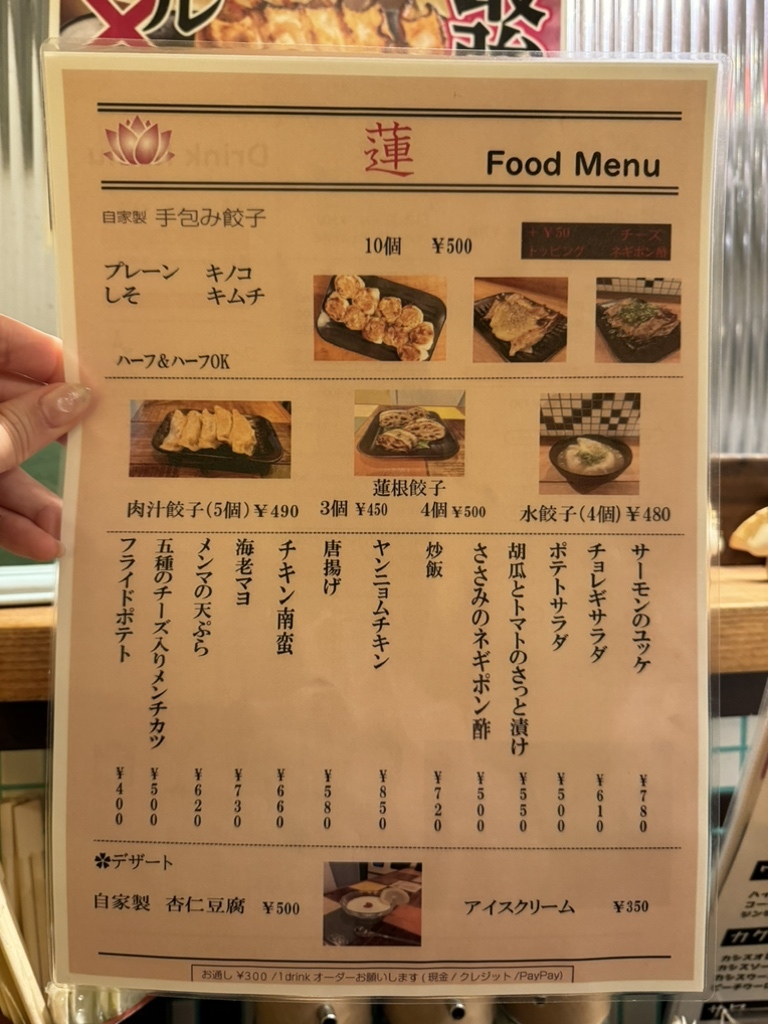 蓮
Food Menu
自家製 手包み餃子
10個 ¥500
+¥50 チーズ
トッピング ネギポン酢
プレーン キノコ
しそ キムチ
ハーフ&ハーフOK
肉汁餃子(5個)¥490
蓮根餃子
3個 ¥450 4個 ¥500
水餃子(4個)¥480
サーモンのユッケ ¥780
チョレギサラダ ¥610
ポテトサラダ ¥500
胡瓜とトマトのさっと漬け ¥550
ささみのネギポン酢 ¥500
炒飯 ¥720
ヤンニョムチキン ¥850
唐揚げ ¥580
チキン南蛮 ¥660
海老マヨ ¥730
メンマの天ぷら ¥620
五種のチーズ入りメンチカツ ¥500
フライドポテト ¥400
✽デザート
自家製 杏仁豆腐 ¥500
アイスクリーム ¥350
お通し ¥300 /1drink オーダーお願いします(現金/クレジット/PayPay)